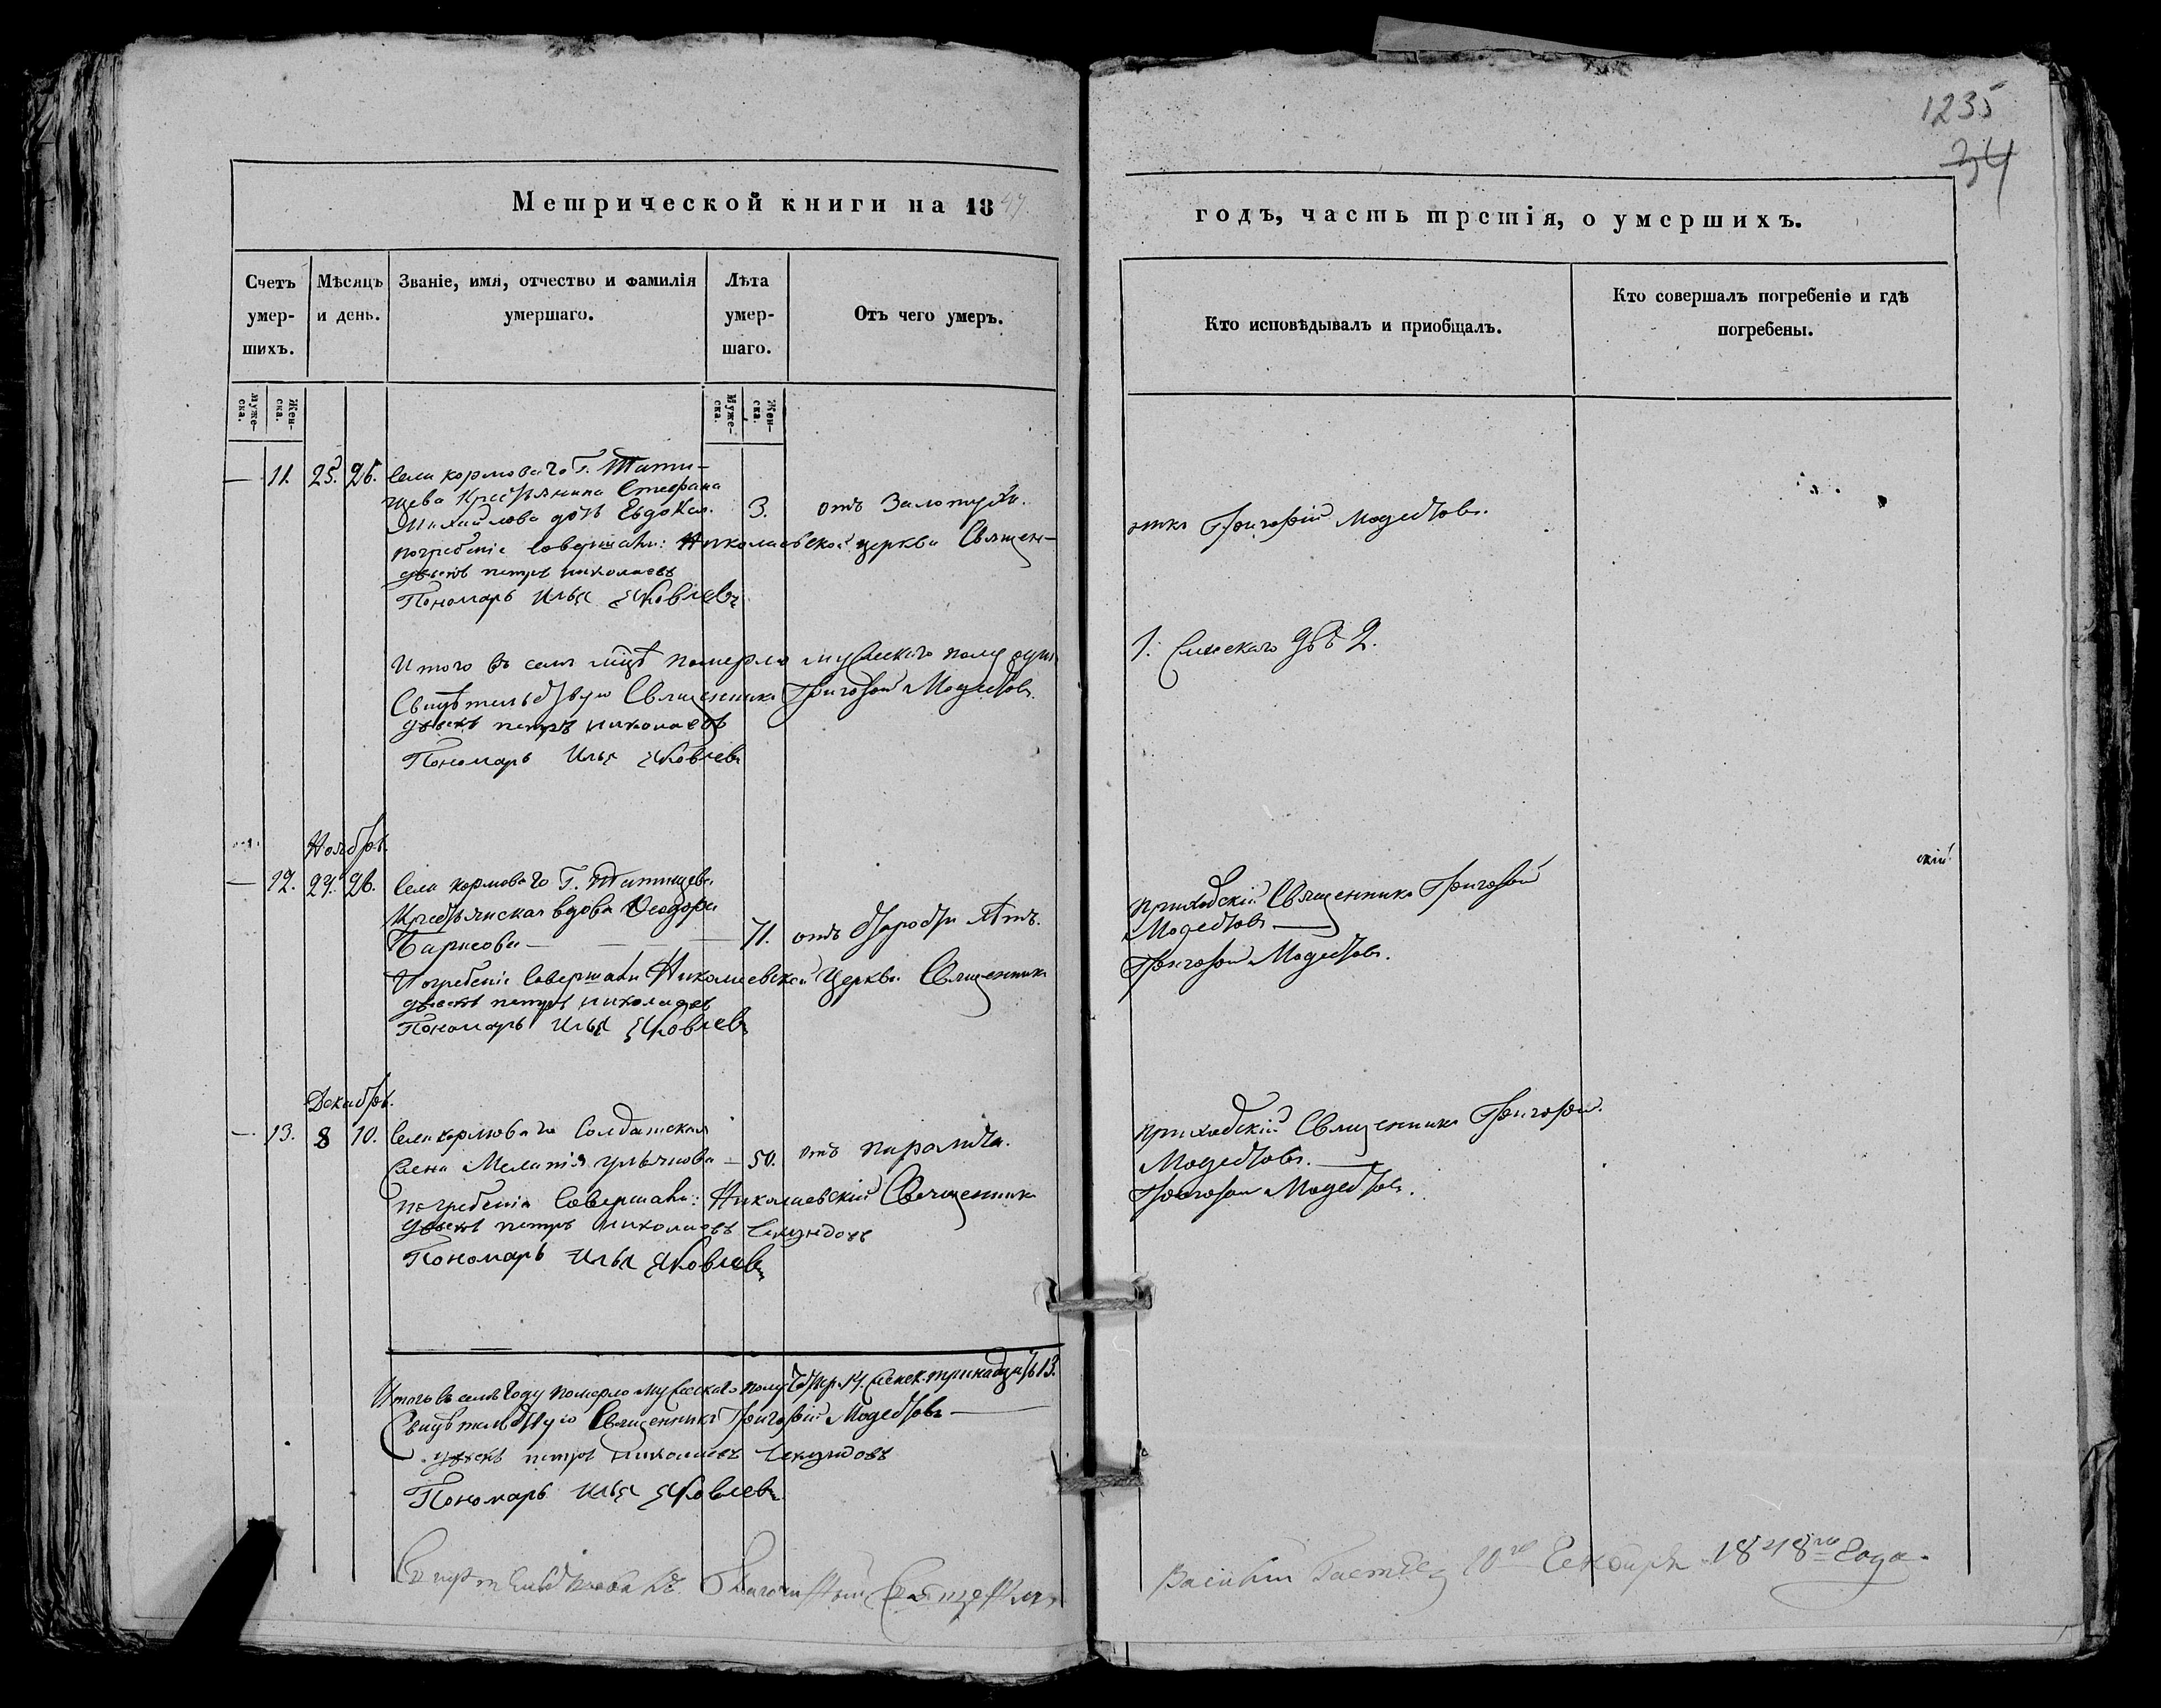 1235
34
Метрической книги на 1847
годъ, часть третія, о умершихъ.
Счетъ умер-шихъ.
Мѣсяцъ и день.
Званіе, имя, отчество и фамилія умершаго.
Лѣта умер-шаго.
Отъ чего умеръ.
Кто исповѣдывалъ и приобщалъ.
Кто совершалъ погребеніе и гдѣ погребены.
муже-ска.
Жен-ска.
Муже-ска.
Жен-ска.
— 11. 25. 26. Села кормоваго Г. Тати-
щева Крестьянина Стефана
Михайлова дочь Евдокея. 3. отъ Золотухи.
погребеніе совершали: Николаевской церкви Священ-
никъ Григорій Модестовъ.
дьячекъ петръ николаевъ
Пономарь Илья Яковлевъ
Итого въ семъ мцѣ померло мужескаго полу души
1. Женскаго двѣ 2.
Свидѣтельствую Священникъ Григорій Модестовъ.
дьячекъ петръ николаевъ
Пономарь Илья Яковлевъ
Ноябрь.
— 12. 24. 26. Села кормоваго Г. Татищева
Крестьянская вдова Феодора
Борисова — 71. отъ старости лѣтъ.
приходскій Священникъ Григорій
Модестовъ —
Погребеніе совершали Николаевской Церкви Священникъ
Григорій Модестовъ.
дьячекъ петръ николаевъ
Пономарь Илья Яковлевъ
скій
Декабрь.
— 13. 8 10. Села кормоваго Солдатская
жена Меланія ульянова — 50. отъ паралича.
приходскій Священникъ Григорій
Модестовъ. —
погребеніе совершали: Николаевскій Священникъ
Григорій Модестовъ.
дьячекъ петръ николаевъ Секундовъ
Пономарь Илья Яковлевъ
Итого въ семъ году померло мужескаго полу 14. женск. тринадцать 13.
Свидѣтельствую Священникъ Григорій Модестовъ —
дьячекъ петръ николаевъ Секундовъ
Пономарь Илья Яковлевъ
Свидѣтельствовалъ Благочинный Священникъ
Василій 10го 1848го Года.